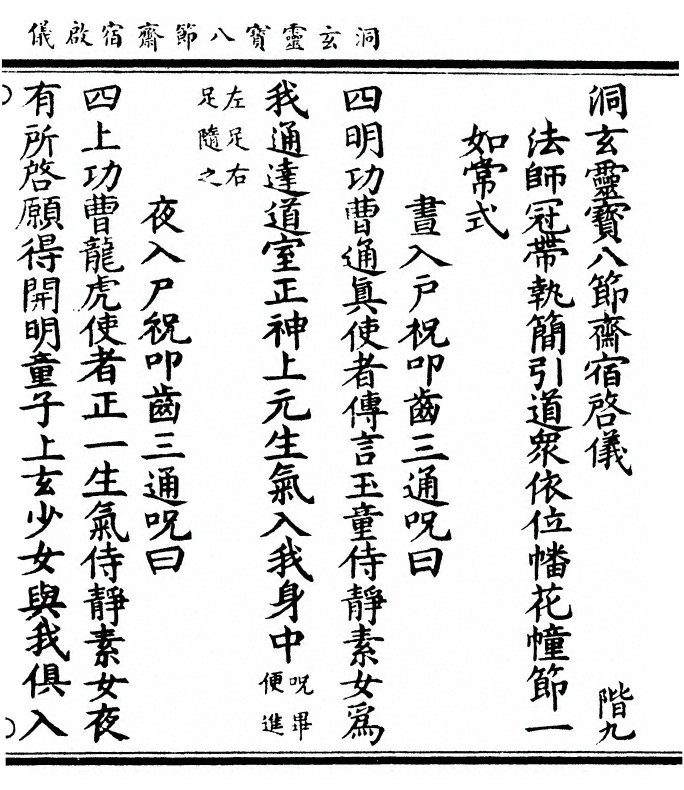 洞玄靈寶八節齋宿啟儀
洞玄靈寶八節齋宿啓儀 階九
法師冠帶執簡引道眾依位幡花幢節一
如常式
晝入戶祝叩齒三通呪曰
四明功曹通眞使者傳言玉童侍靜素女爲
我通達道室正神上元生氣入我身中呪畢便進
左足右足隨之
夜入戶祝叩齒三通呪曰
四上功曹龍虎使者正一生氣侍靜素女夜
有所啓願得開明童子上玄少女與我俱入